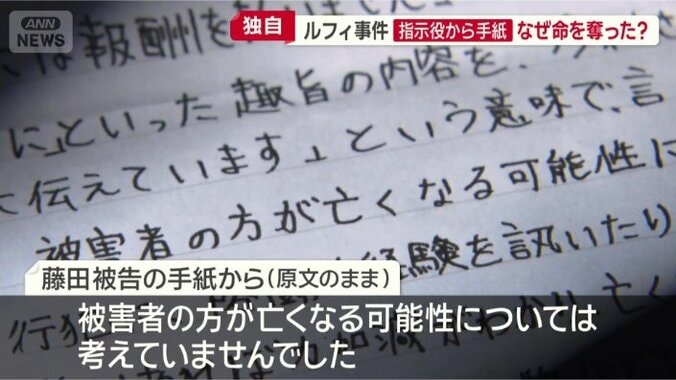 ANN
NEWS
独自
ルフィ事件 指示役から手紙 なぜ命を奪った?
報酬を
に」といった趣旨の内容を、
伝えています」という意味で、言
被害者の方が亡くなる可能性に
経験を訊いたり
藤田被告の手紙から(原文のまま)
被害者の方が亡くなる可能性については
考えていませんでした